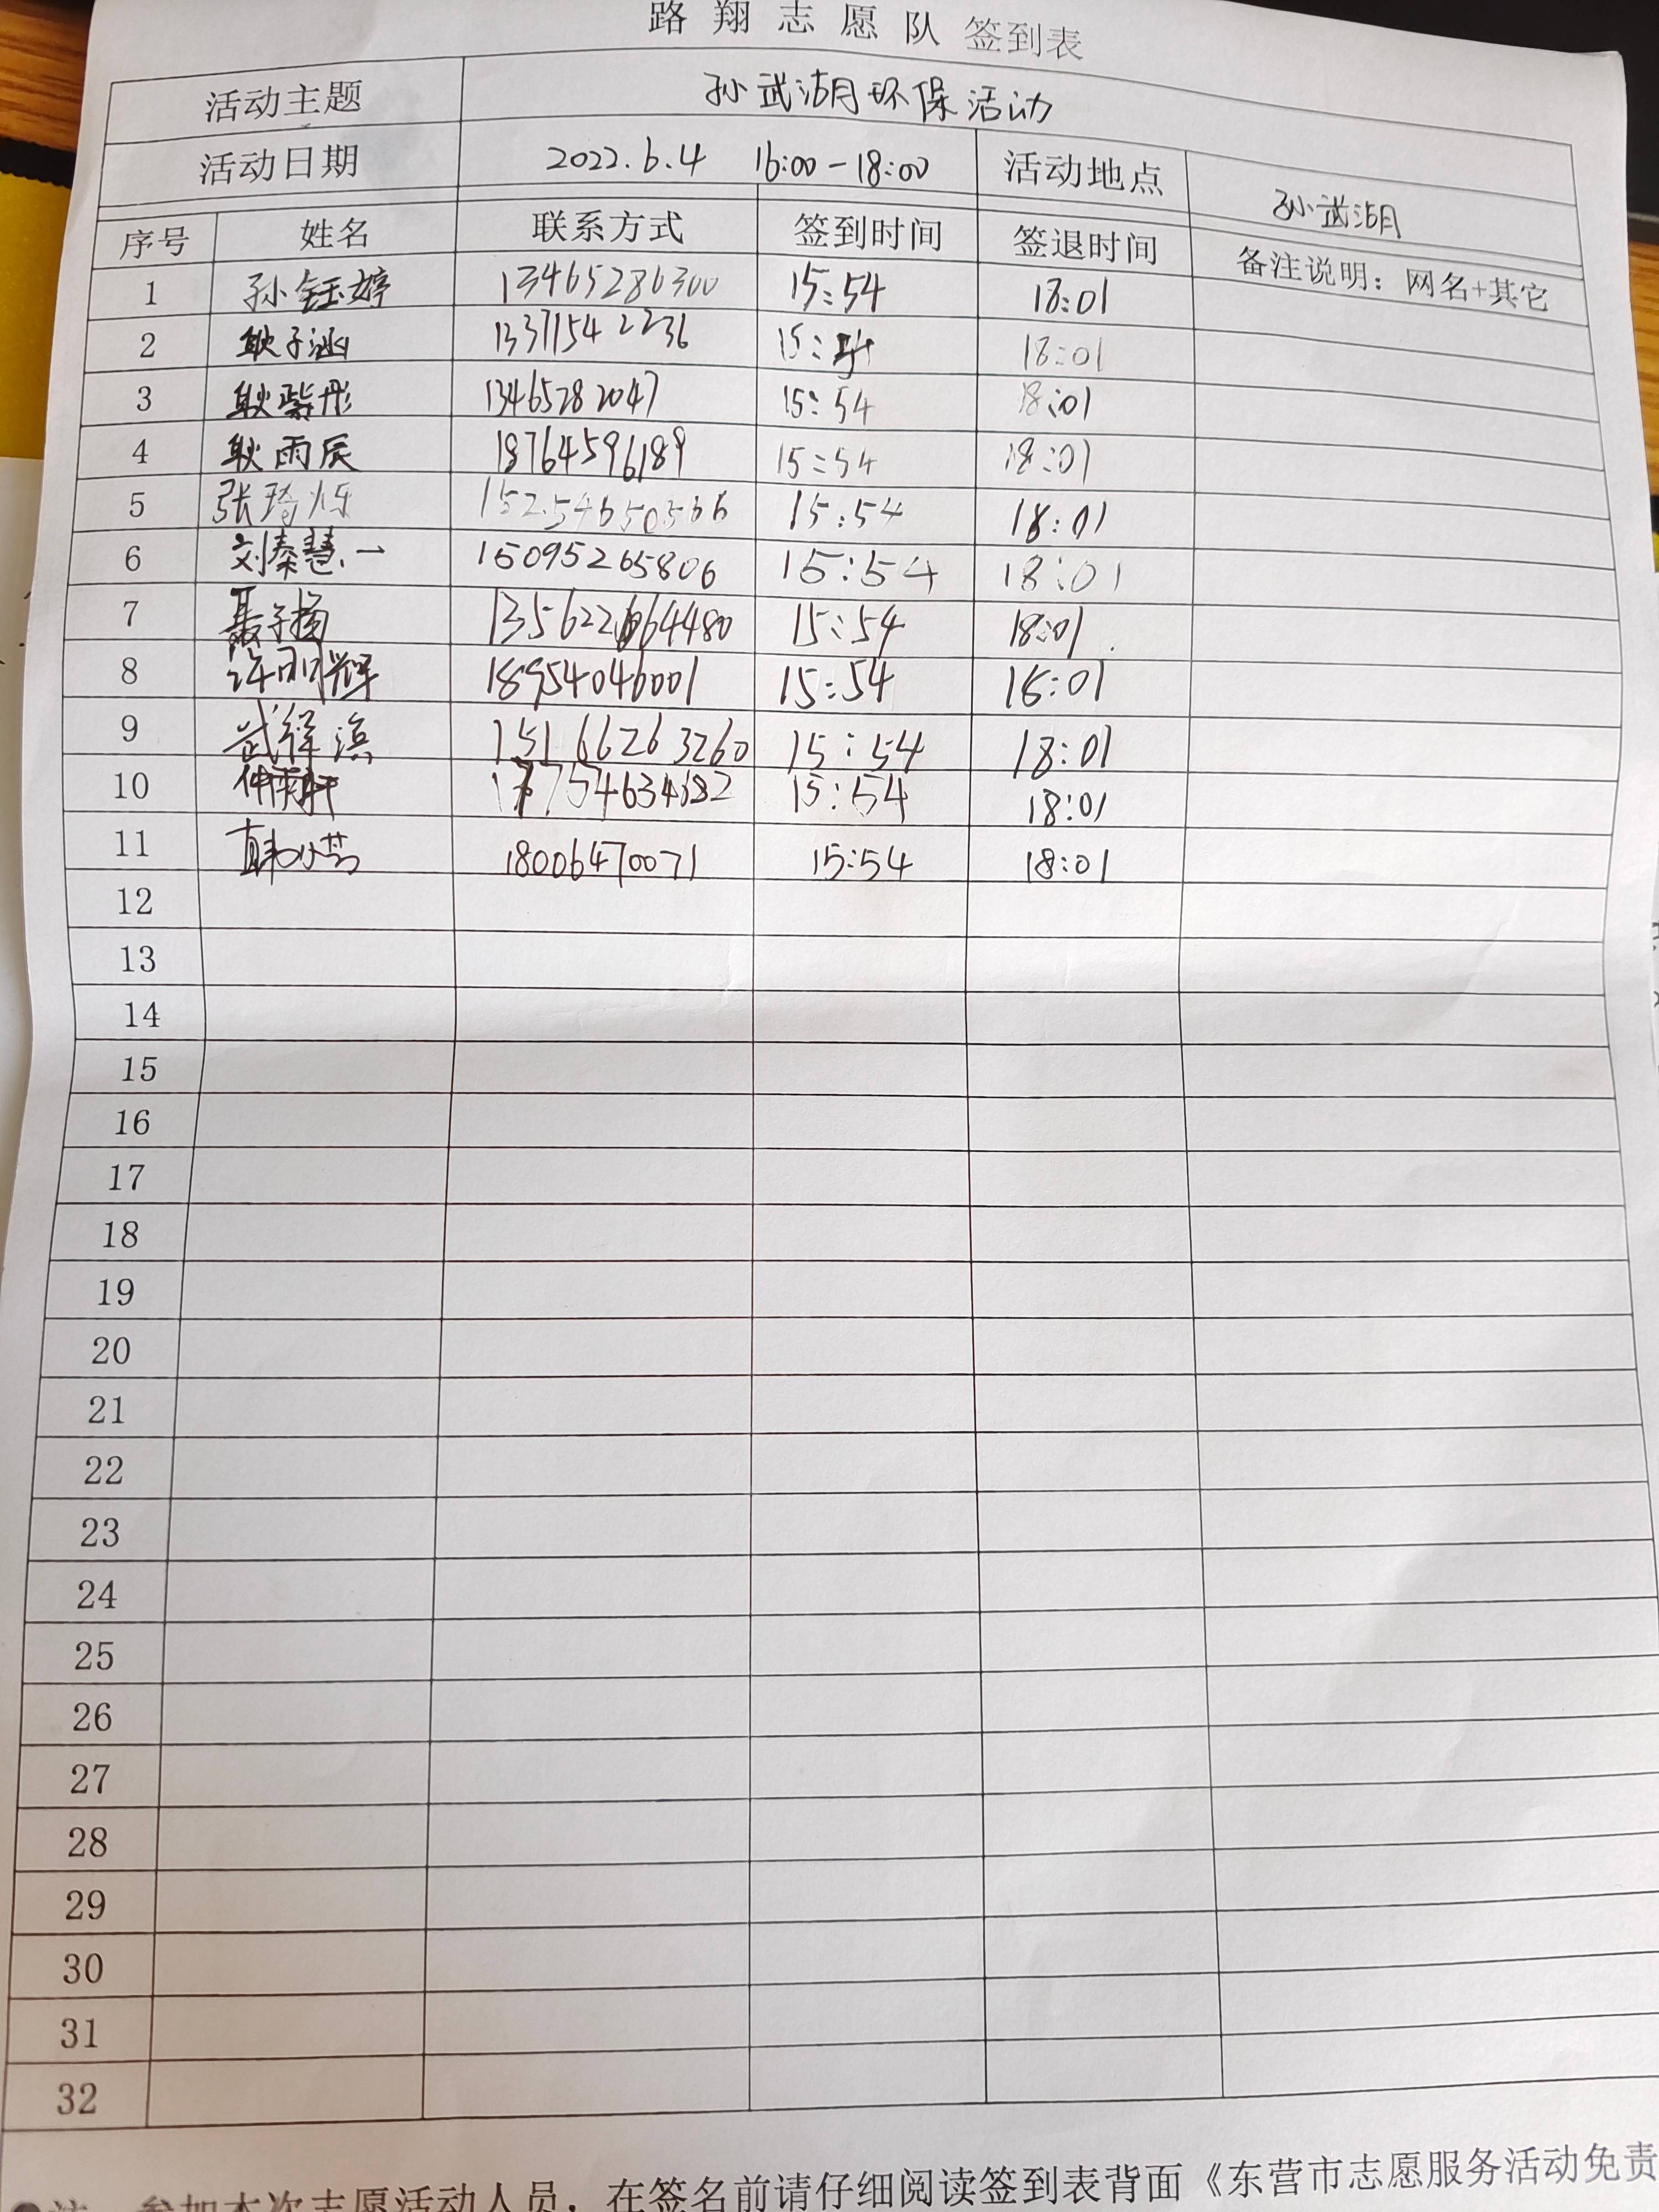 路翔志愿队 签到表
活动主题 孙武湖环保活动
活动日期 2022.6.4 16:00-18:00 活动地点 孙武湖
序号 姓名 联系方式 签到时间 签退时间 备注说明：网名+其它
1 孙钰婷 13465286300 15:54 18:01
2 耿子涵 13371542236 15:54 18:01
3 耿紫彤 13465282047 15:54 18:01
4 耿雨辰 18764596189 15:54 18:01
5 张琦烁 15254650566 15:54 18:01
6 刘秦慧一 15095265806 15:54 18:01
7 聂子扬 15:54 18:01
8 许明辉 18954046001 15:54 18:01
9 武祥滨 15166263260 15:54 18:01
10 15:54 18:01
11 韩小芸 18006470071 15:54 18:01
12
13
14
15
16
17
18
19
20
21
22
23
24
25
26
27
28
29
30
31
32
注 参加本次志愿活动人员，在签名前请仔细阅读签到表背面《东营市志愿服务活动免责